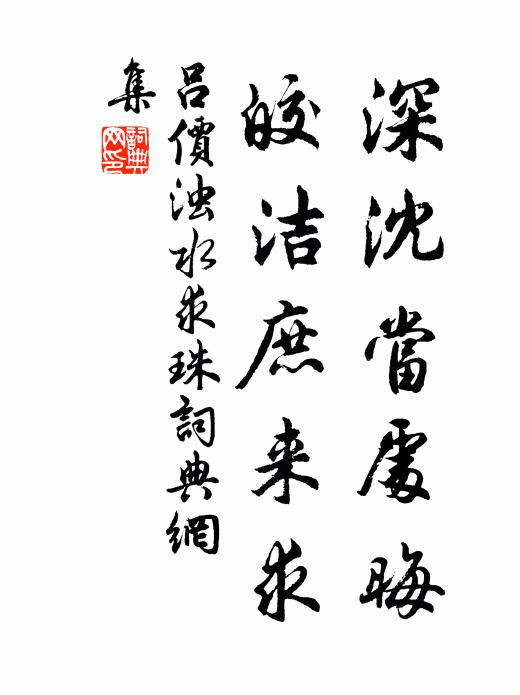 深沈當處晦
皎洁庶来求
吕價浊水求珠詞典網
集
詞典網印